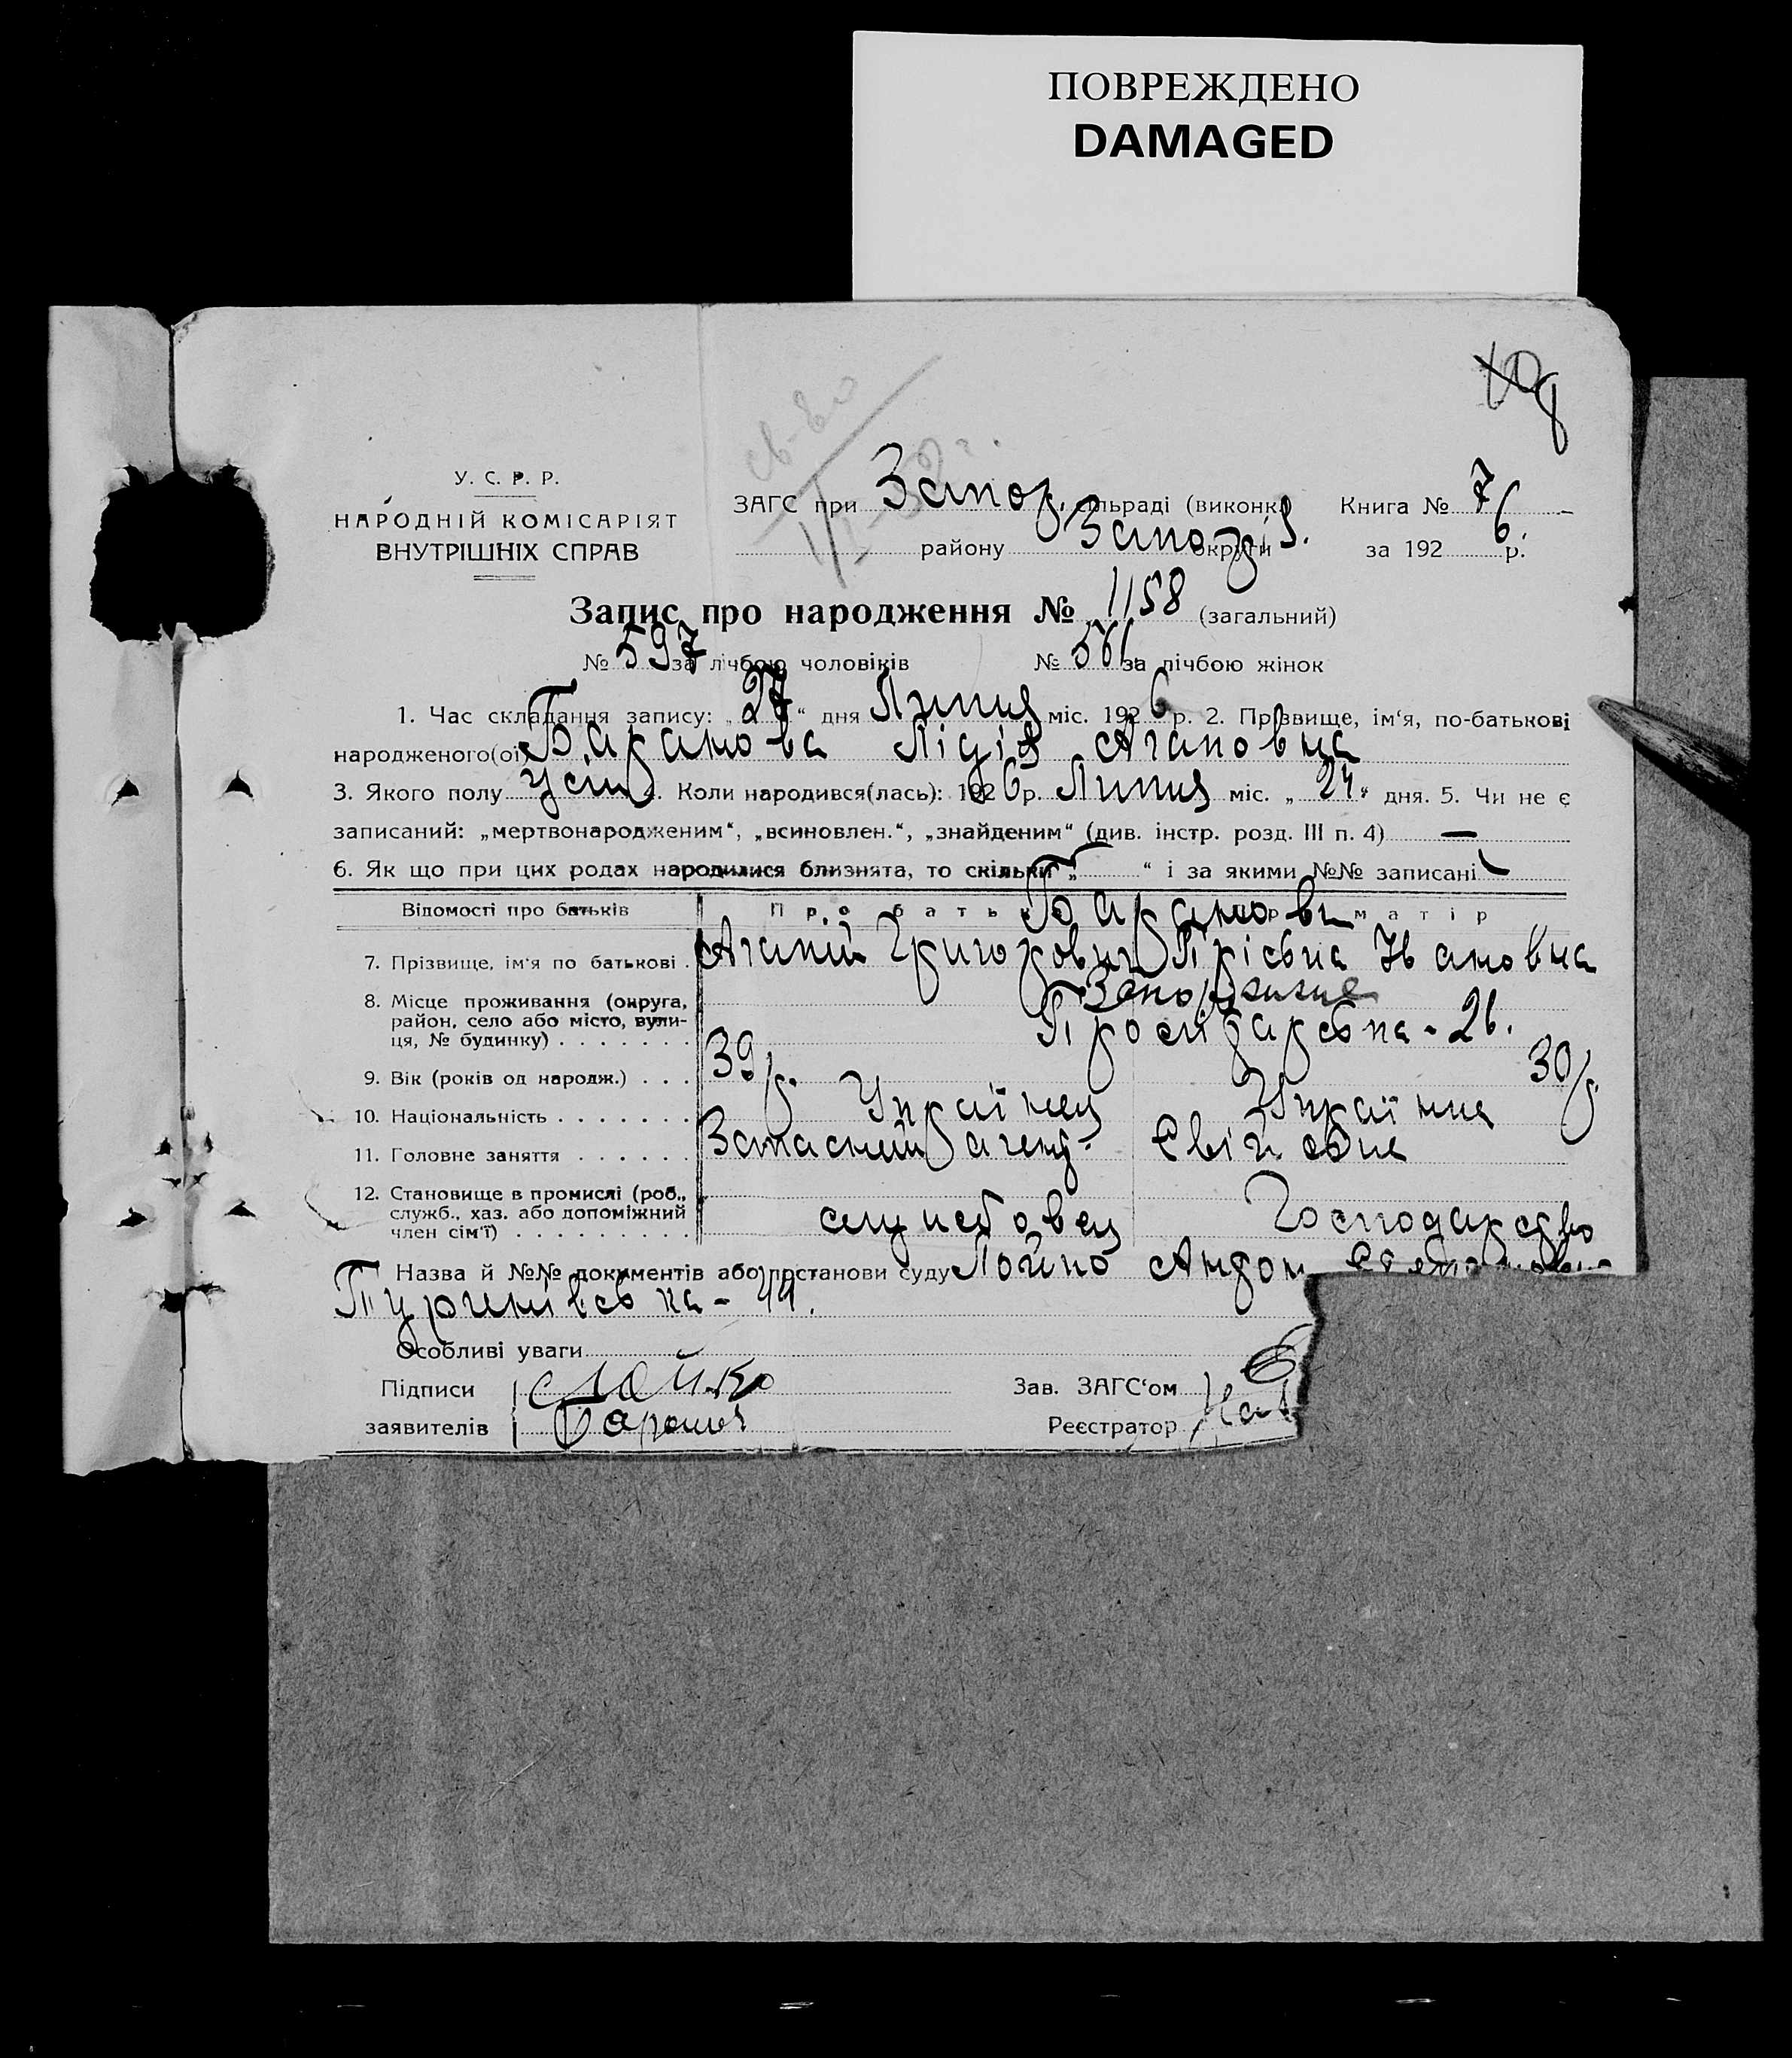 ПОВРЕЖДЕНО
DAMAGED
У. С. Р. Р.
НАРОДНІЙ КОМІСАРІЯТ
ВНУТРІШНІХ СПРАВ
ЗАГС при Запор. сільраді (виконк.) Книга № 7
району Запоріз. округи за 1926 р.
Запис про народження № 1158 (загальний)
№ 597 за лічбою чоловіків № 561 за лічбою жінок
1. Час складання запису: „27“ дня Липня міс. 1926 р. 2. Прізвище, ім‘я, по-батькові
народженого(ої) Баранова Лідія Агаповна
3. Якого полу жін. 4. Коли народився(лась): 1926 р. Липня міс. „24“ дня. 5. Чи не є
записаний: „мертвонародженим“, „всиновлен.“, „знайденим“ (див. інстр. розд. III п. 4) —
6. Як що при цих родах народилися близнята, то скільки „ “ і за якими №№ записані
Відомості про батьків Про батька Про матір
Баранови
7. Прізвище, ім‘я по батькові Агапій Григорович Ивановна
8. Місце проживання (округа, район, село або місто, вулиця, № будинку) Запоріжжя
Пролетарська - 26.
9. Вік (років од народж.) 39 р. 30 р.
10. Національність Українец Українка
11. Головне заняття агент
12. Становище в промислі (роб., служб., хаз. або допоміжний член сім‘ї) служебовец Господарство
Назва й №№ документів або постанови суду Лойко Антон
Тургенівська - 44.
Особливі уваги
Підписи Лойко Зав. ЗАГС‘ом
заявителів Реєстратор